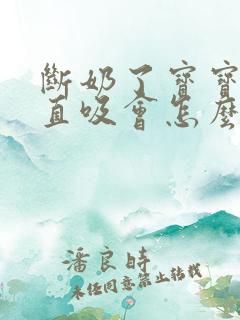 斷奶了寶寶
直吸會怎麼
潘良時
未經同意禁止轉載